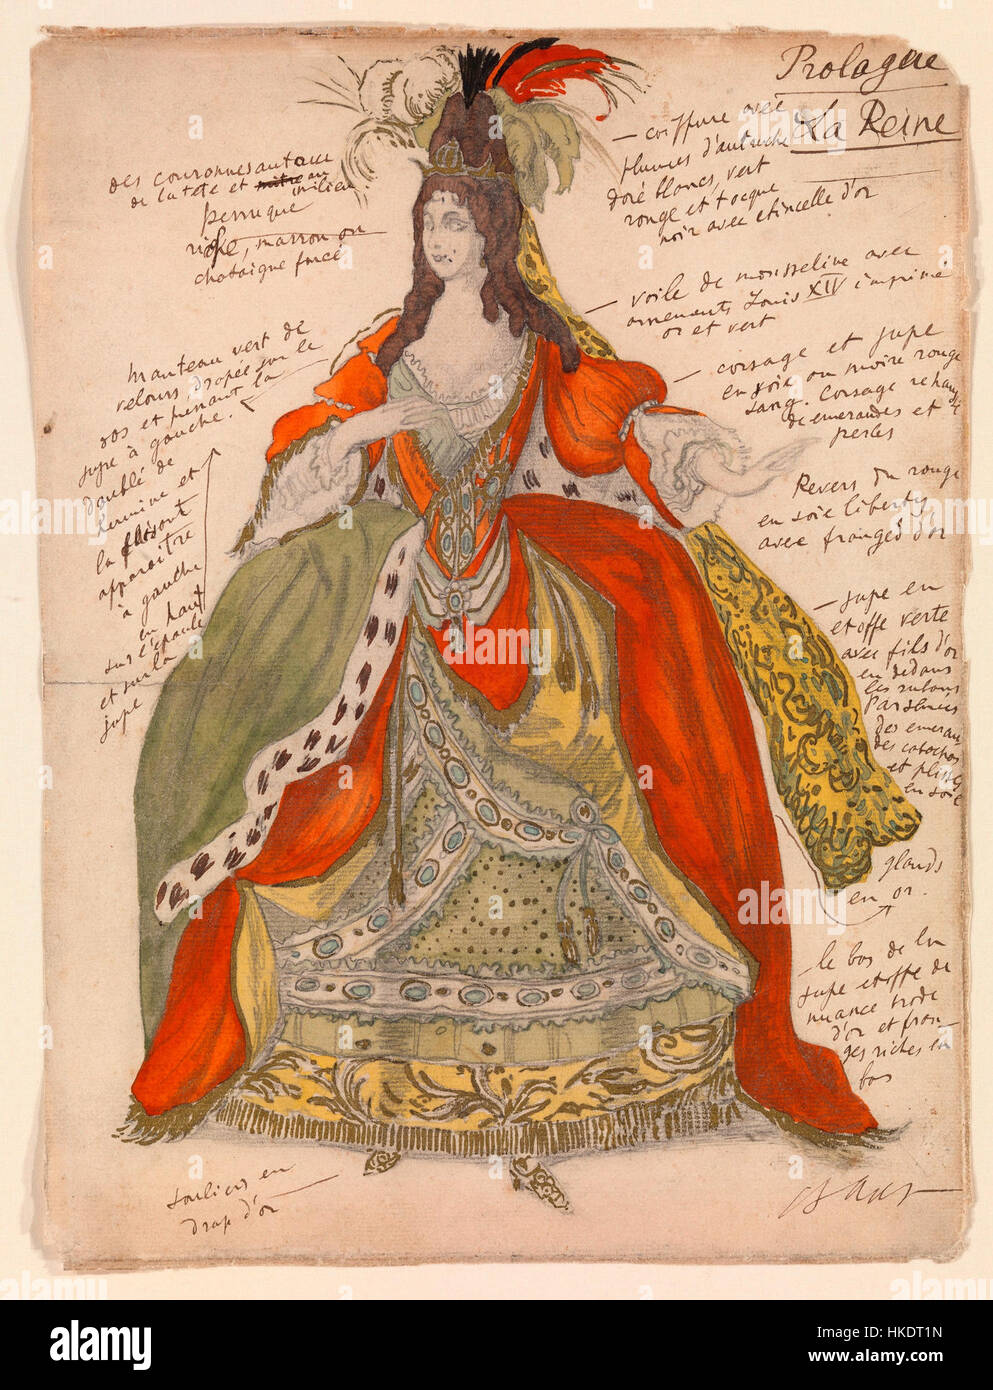 Prologue
La Reine
— coiffure avec
plumes d'autruche
doré blancs, vert
rouge et tocque
noir avec etincelle d'or
— voile de mousseline avec
ornements Louis XIV imprimé
or et vert
— corsage et jupe
en soie ou moire rouge
sang. Corsage rehaussé
d'emeraudes et
perles
Revers du rouge
en soie liberty
avec franges d'or
— jupe en
etoffe verte
avec fils d'or
en dedans
les rubans
des emeraudes
et
en soie
glands
en or.
— le bas de la
jupe etoffe de
nuance
d'or et fran-
ges riches
bas
des couronnes autour
de la tete et au milieu
perruque
riche, marron ou
chataigne foncé
manteau vert de
velours drapée sur le
dos et prenant la
jupe à gauche.
doublé de
hermine et
la faisant
apparaître
à gauche
en haut
sur l'epaule
et sur la
jupe
souliers en
drap d'or
Bakst
alamy
Image ID: HKDT1N
www.alamy.com